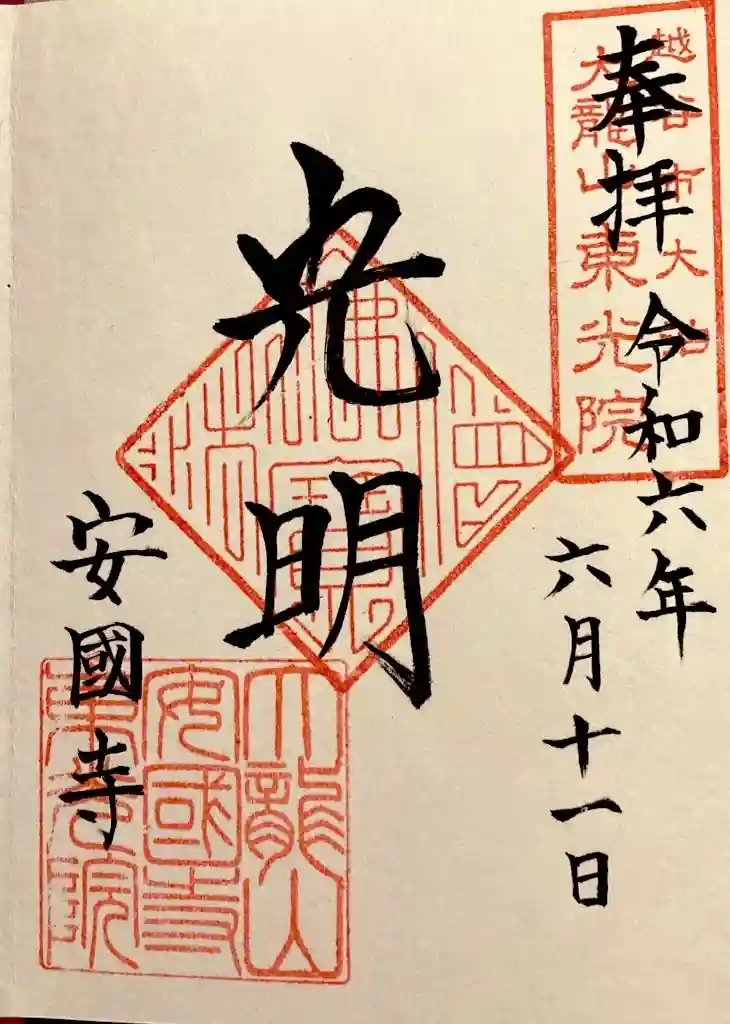 奉拝
令和六年
六月十一日
越谷市大泊
大龍山東光院
光明
佛法僧寶
安國寺
大龍山
安國寺
東光院